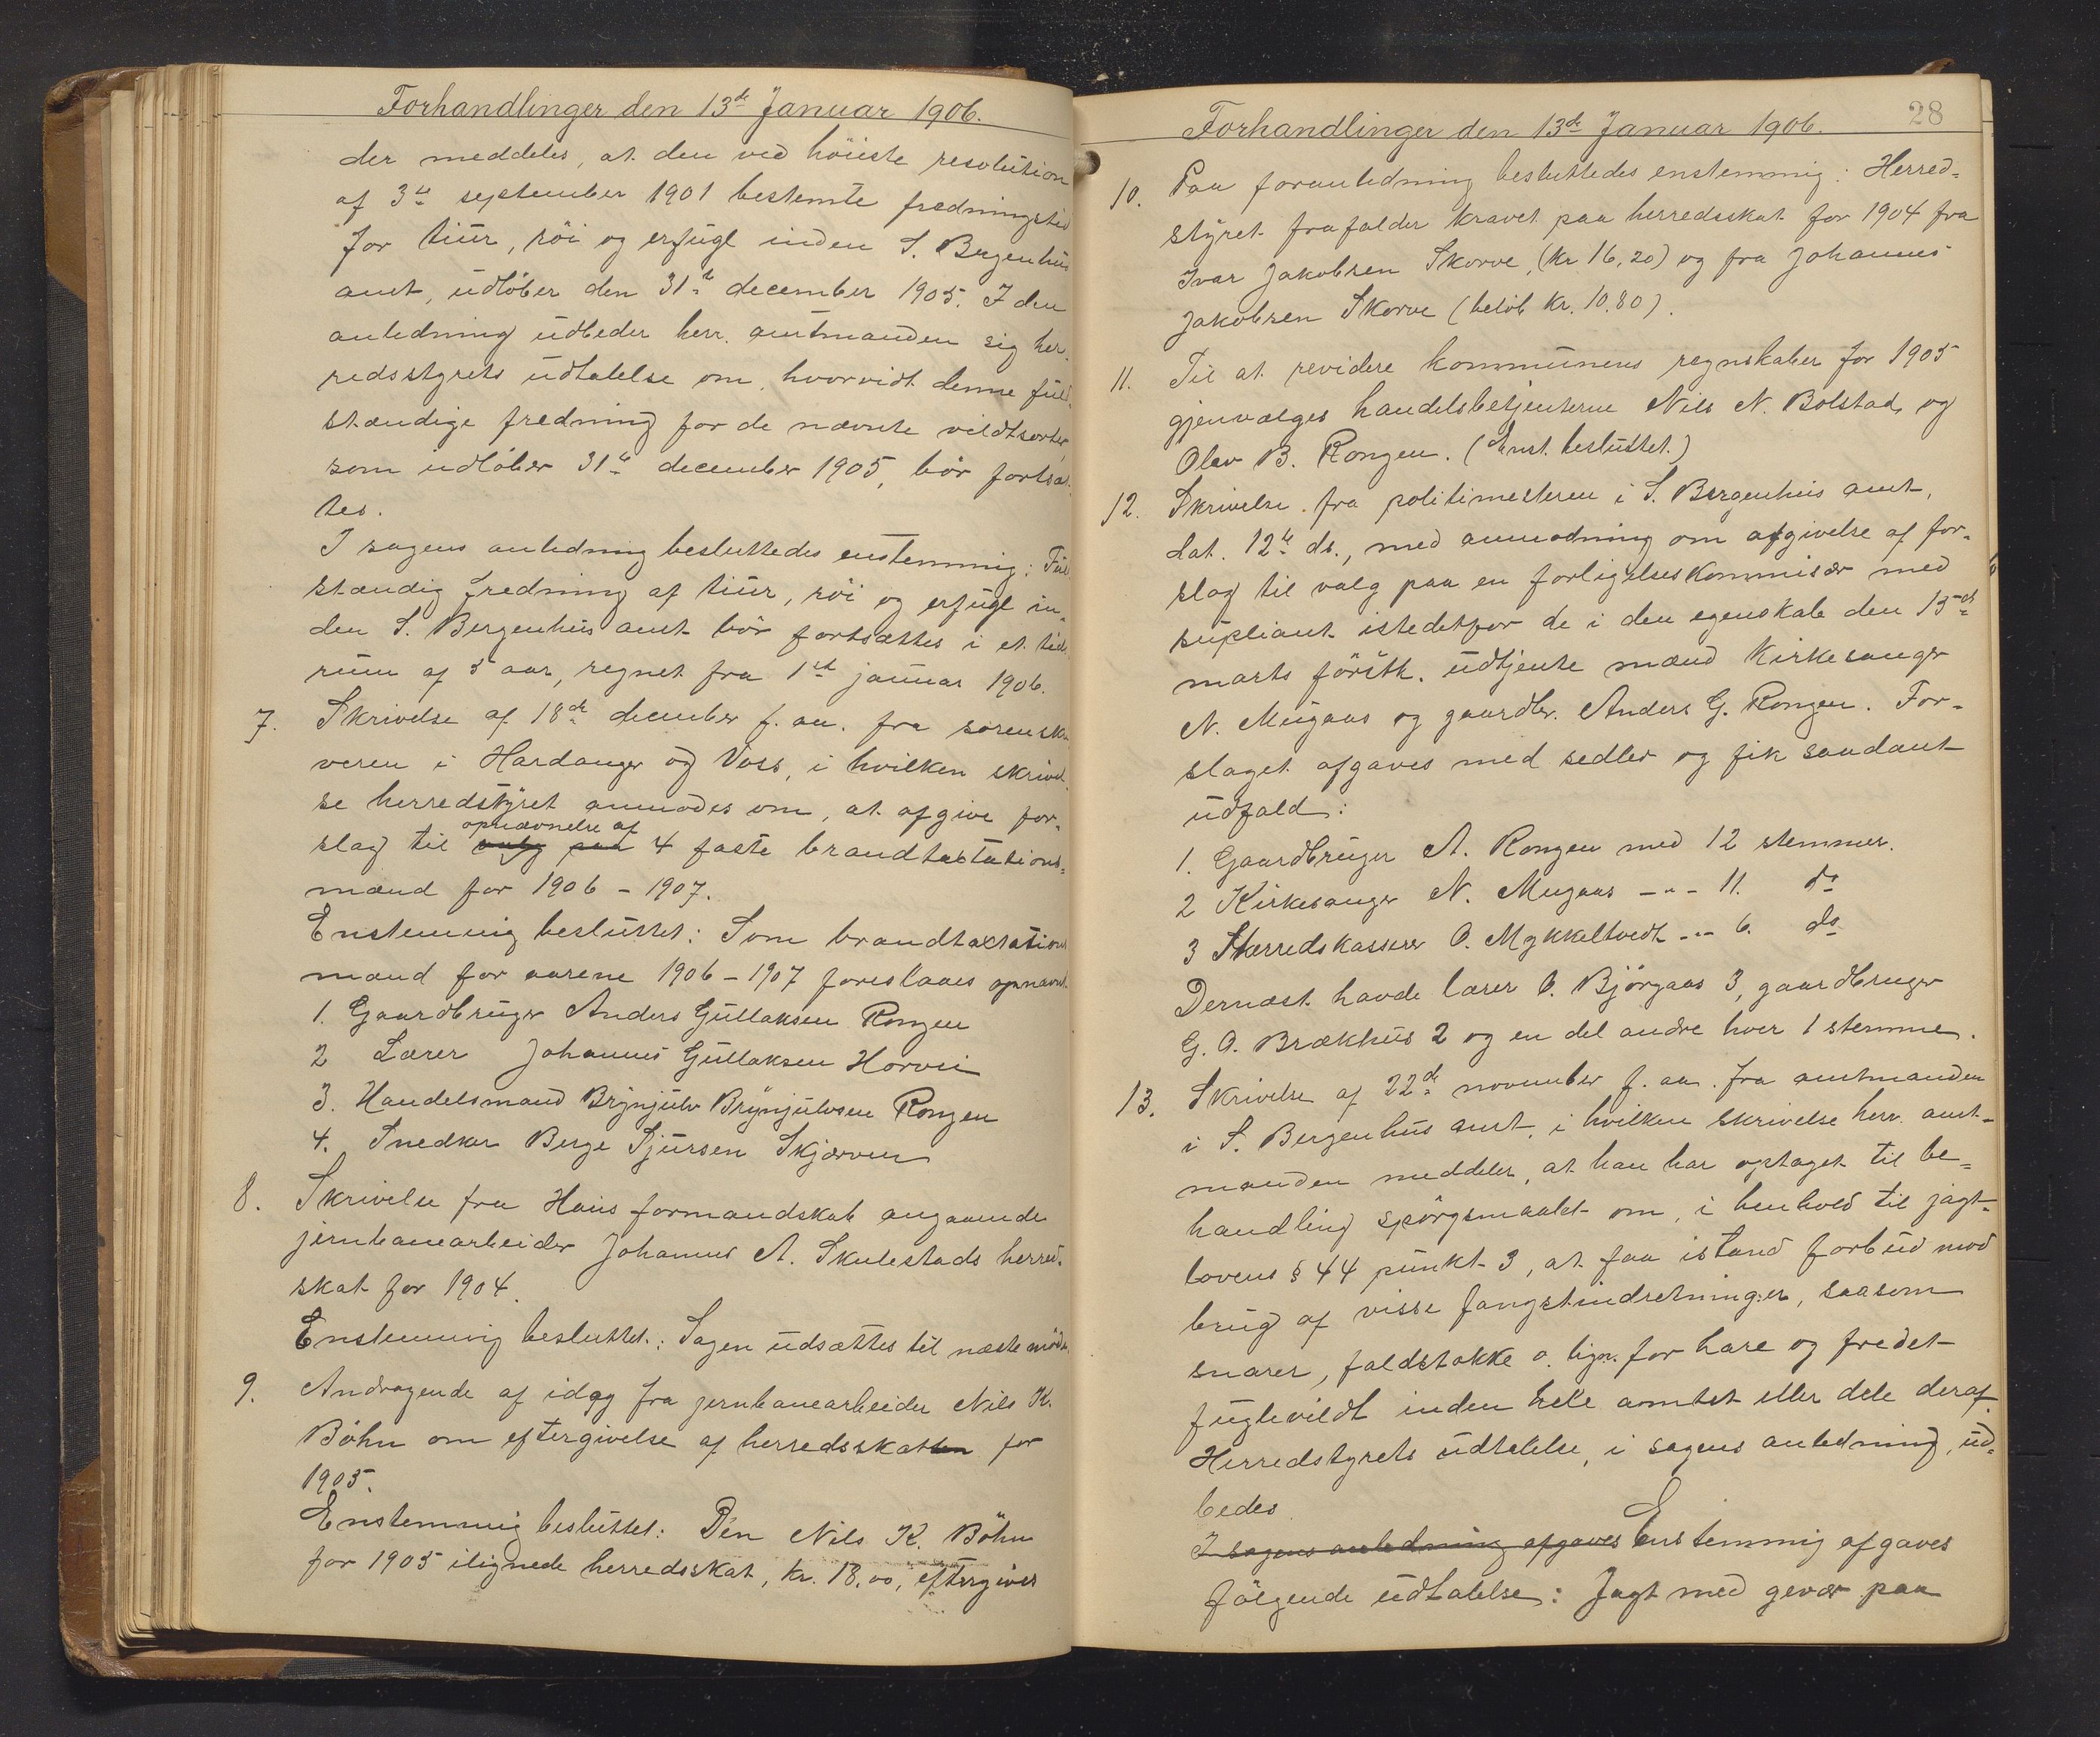 Forhandlinger den 13de Januar 1906.
der meddeles, at den ved höieste resolution
af 3de september 1901 bestemte fredningstid
for tiur, röi og erfugl inden S. Bergenhus
amt, udlöber den 31te december 1905. I den
anledning udbeder herr. amtmanden sig her-
redsstyrets udtalelse om, hvorvidt denne fuld-
stændige fredning for de nævnte vildtsorter,
som udlöber 31te december 1905, bör fortsæt-
tes.
I sagens anledning besluttedes enstemmig: Ful-
stændig fredning af tiur, röi og erfugl in-
den S. Bergenhus amt bör fortsættes i et tids-
rum af 5 aar, regnet fra 1ste januar 1906.
7. Skrivelse af 18de december f. aa. fra sorenskri-
veren i Hardanger og Voss, i hvilken skrivel-
se herredstyret anmodes om, at afgive for-
opnævnelse af
slag til valg paa 4 faste brandtaxtations-
mænd for 1906 - 1907.
Enstemmig besluttet: Som brandtaxtations
mænd for aarene 1906 - 1907 foreslaaes opnævnt
1. Gaardbruger Anders Gullaksen Rongen
2 Lærer Johannes Gullaksen Horvei
3. Handelsmand Brynjulv Brynjulvsen Rongen
4. Snedker Berge Sjursen Skjerven
8. Skrivelse fra Haus formandskab angaaende
jernbanearbeider Johannes A. Skulestads herred-
skat for 1904.
Enstemmig besluttet: Sagen udsættes til næste möde.
9. Andragende af idag fra jernbanearbeider Nils K.
Böhn om eftergivelse af herredsskatten for
1905.
Enstemmig besluttet: Den Nils K. Böhn
for 1905 ilignede herredsskat, kr. 18,00, eftergives
28
Forhandlinger den 13de Januar 1906.
10. Paa foranledning besluttedes enstemmig: Herred-
styret frafalder kravet paa herredsskat for 1904 fra
Ivar Jakobsen Skorve, (kr 16,20) og fra Johannes
Jakobsen Skorve (beløb kr. 10.80).
11. Til at revidere kommunens regnskaber for 1905
gjenvælges handelsbetjenterne Nils N. Bolstad og
Olav B. Rongen. (Enst. besluttet.)
12. Skrivelse fra politimesteren i S. Bergenhus amt,
dat. 12te ds., med anmodning om afgivelse af for-
slag til valg paa en forligelseskommisær med
supliant istedetfor de i den egenskab den 15de
marts förstk. udtjente mænd kirkesanger
N. Mugaas og gaardbr. Anders G. Rongen. For-
slaget afgaves med sedler og fik saadant
udfald:
1. Gaardbruger A. Rongen med 12 stemmer.
2 Kirkesanger N. Mugaas -"- 11. do
3 Herredskasserer O. Mykkeltvedt -"- 6. do
Dernæst havde lærer O. Björgaas 3, gaardbruger
G. O. Brækhus 2 og en del andre hver 1 stemme.
13. Skrivelse af 22de november f. aa. fra amtmanden
i S. Bergenhus amt, i hvilken skrivelse herr. amt-
manden meddeler, at han har optaget til be-
handling spörgsmaalet om, i henhold til jagt-
lovens § 44 punkt 3, at faa istand forbud mod
brug af visse fangstindretninger, saasom
snarer, faldstokke o. lign. for hare og fredet
fuglevildt inden hele amtet eller dele deraf.
Herredstyrets udtalelse, i sagens anledning, ud-
bedes.
I sagens anledning afgaves Enstemmig afgaves
fölgende udtalelse: Jagt med gevær paa